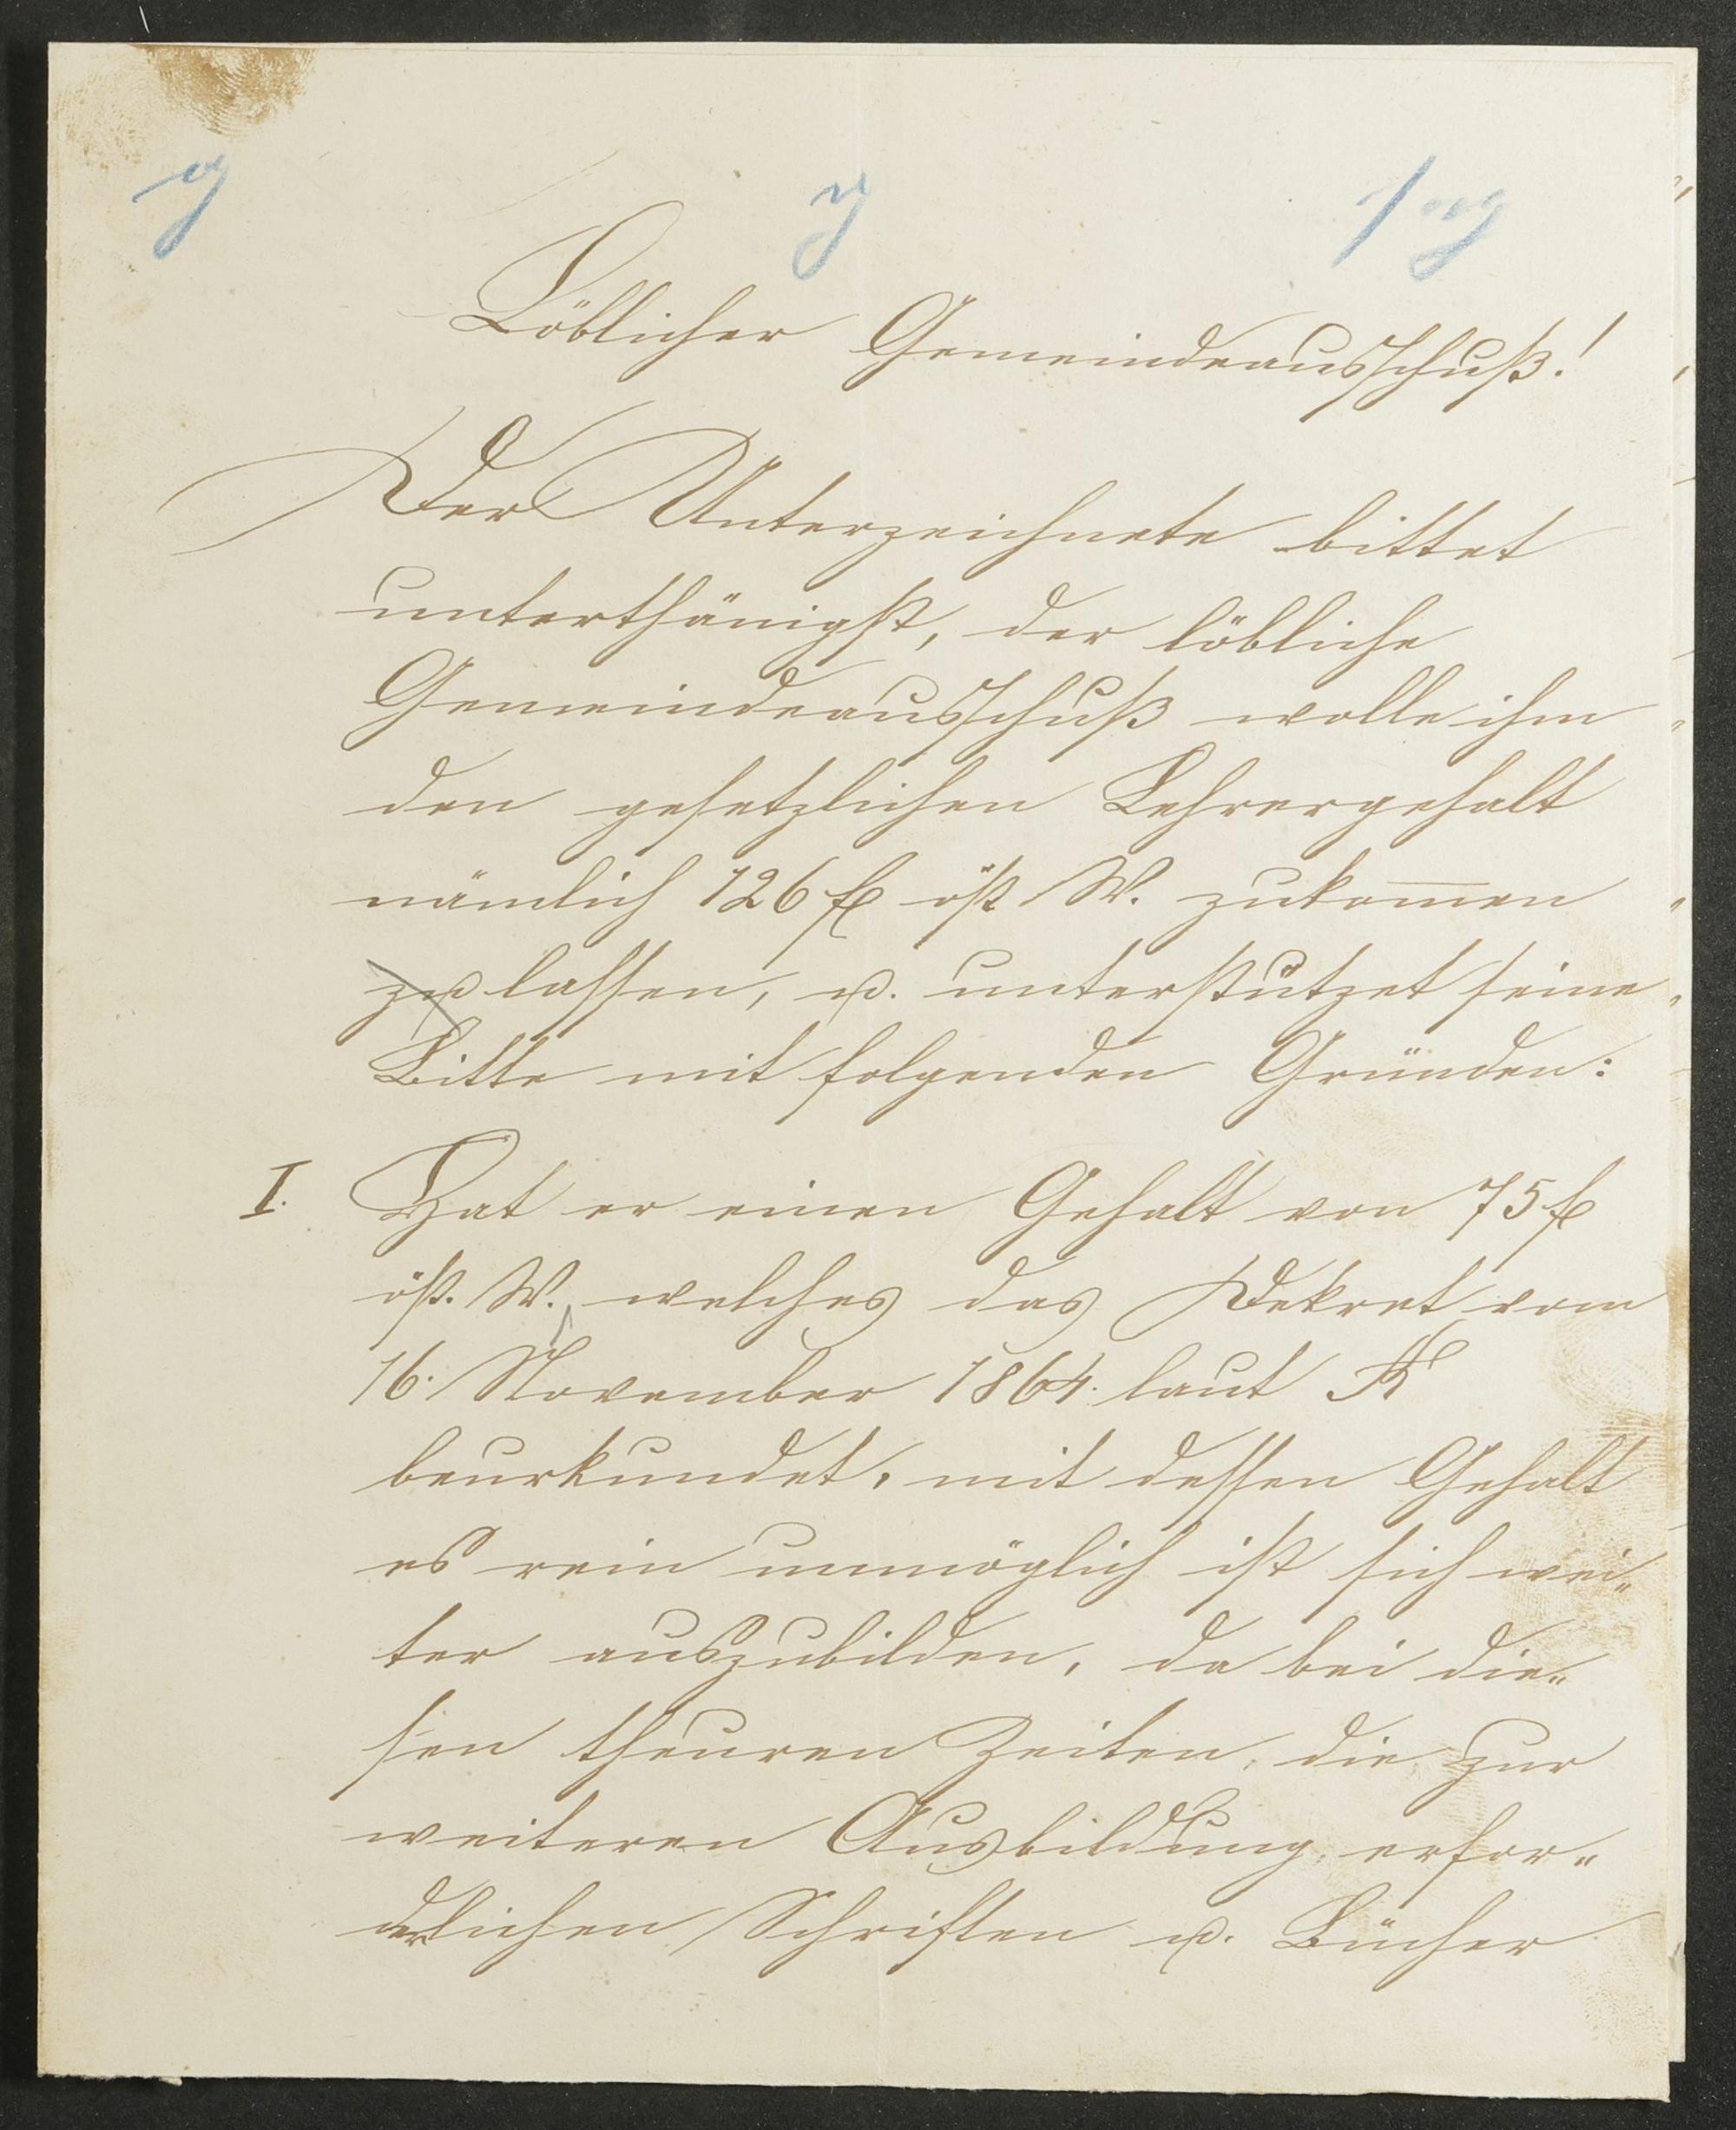 Löblicher Gemeindeausschuß!
Der Unterzeichnete bittet
unterthänigst, der löbliche
Gemeindeausschuß wolle ihm
den gesetzlichen Lehrergehalt
nämlich 126 fl öst W. zukom̅en
zu lassen, u. unterstützet seine
Bitte mit folgenden Gründen:
I. Hat er einen Gehalt von 75 fl
öst. W., welches das Dekret vom
16. November 1864. laut A
beurkundet, mit dessen Gehalt
es rein unmöglich ist sich wei„
ter auszubilden, da bei die„
sen theuren Zeiten, die zur
weiteren Ausbildung erfor„
derlichen Schriften u. Bücher